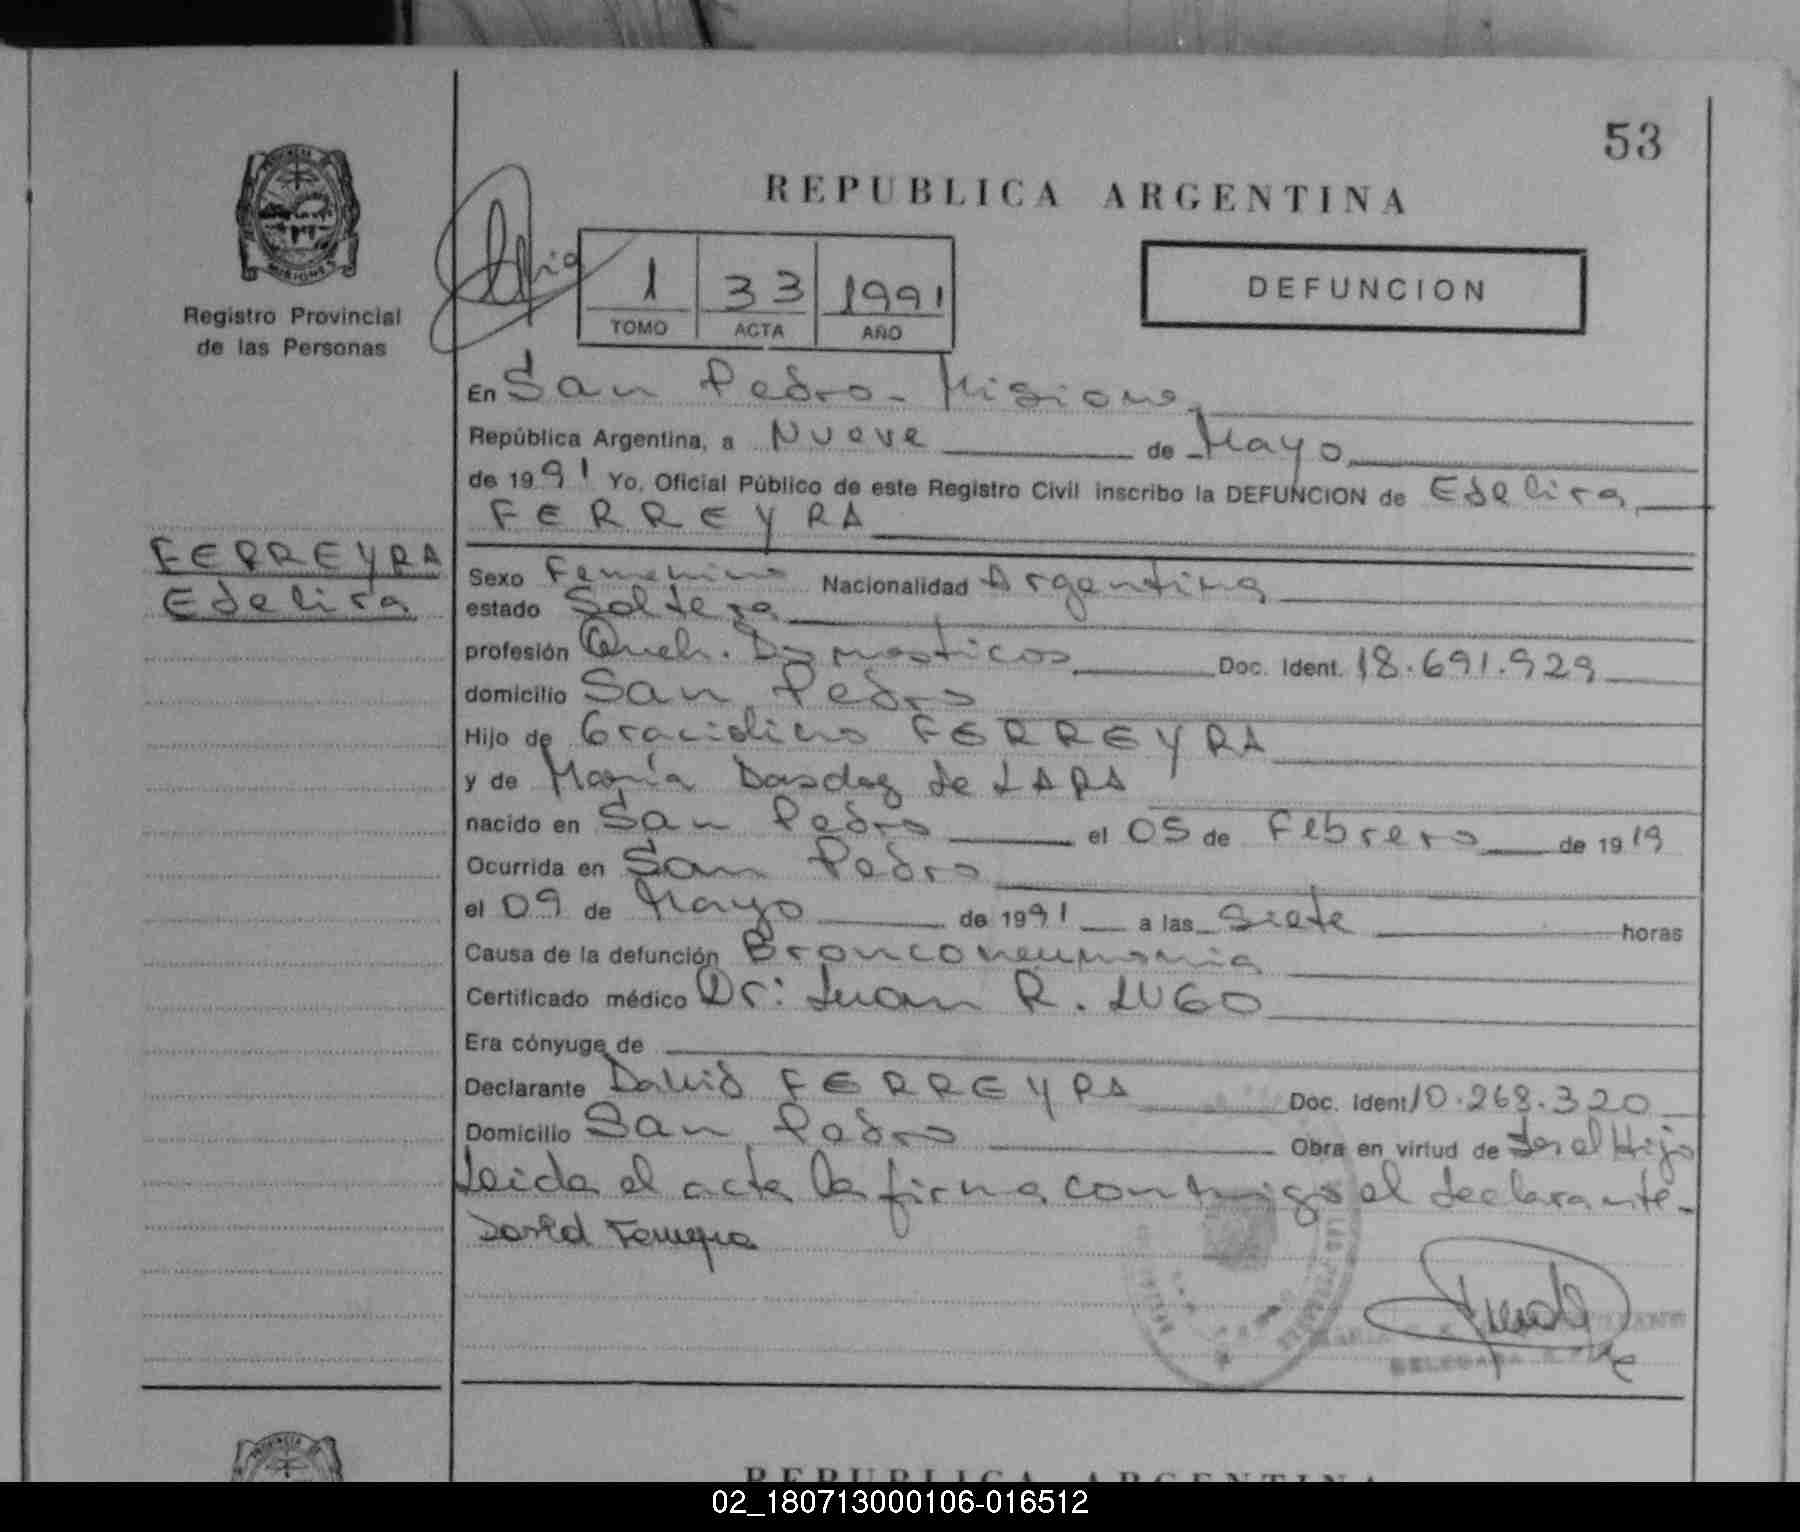 53
REPUBLICA ARGENTINA
PROVINCIA DE
MISIONES
Registro Provincial
de las Personas
DEFUNCION
1 33 1991
TOMO ACTA AÑO
En San Pedro - Misiones
República Argentina, a Nueve de Mayo
de 1991 Yo, Oficial Público de este Registro Civil inscribo la DEFUNCION de Edelira
FERREYRA
FERREYRA
Edelira
Sexo Femenino Nacionalidad Argentina
estado Soltera
profesión Queh. Domesticos Doc. Ident. 18.691.929
domicilio San Pedro
Hijo de Graciolino FERREYRA
y de María de LARA
nacido en San Pedro el 05 de Febrero de 1919
Ocurrida en San Pedro
el 09 de Mayo de 1991 a las Siete horas
Causa de la defunción Bronconeumonia
Certificado médico Dr: Juan R. LUGO
Era cónyuge de
Declarante David FERREYRA Doc. Ident 10.268.320
Domicilio San Pedro Obra en virtud de Ser el Hijo
Leida el acta la firma conmigo el declarante.
David Ferreyra
DELEGADA
REPUBLICA ARGENTINA
02_180713000106-016512